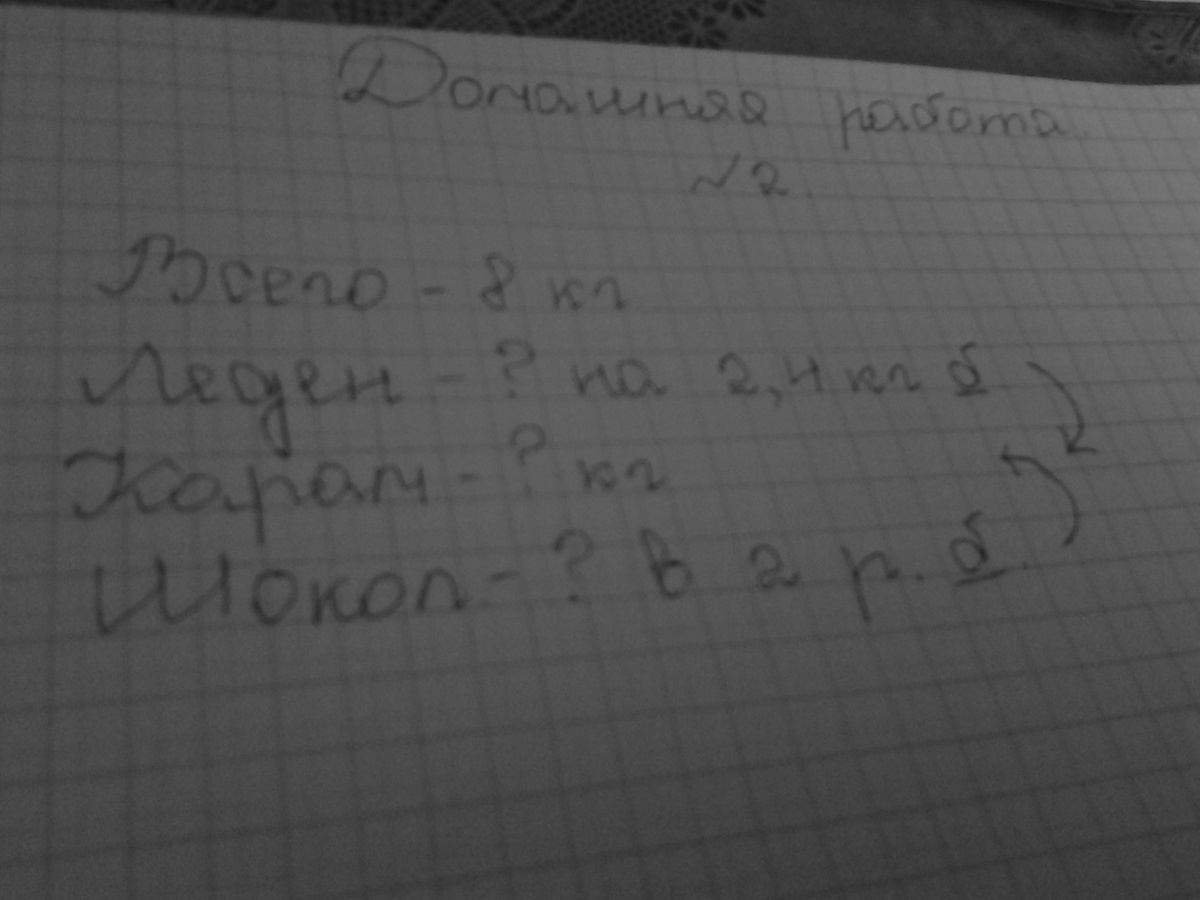 Домашняя работа.
№2.
Всего - 8 кг
Леден - ? на 2,4 кг б.
Карам - ? кг
Шокол - ? в 2 р. б.